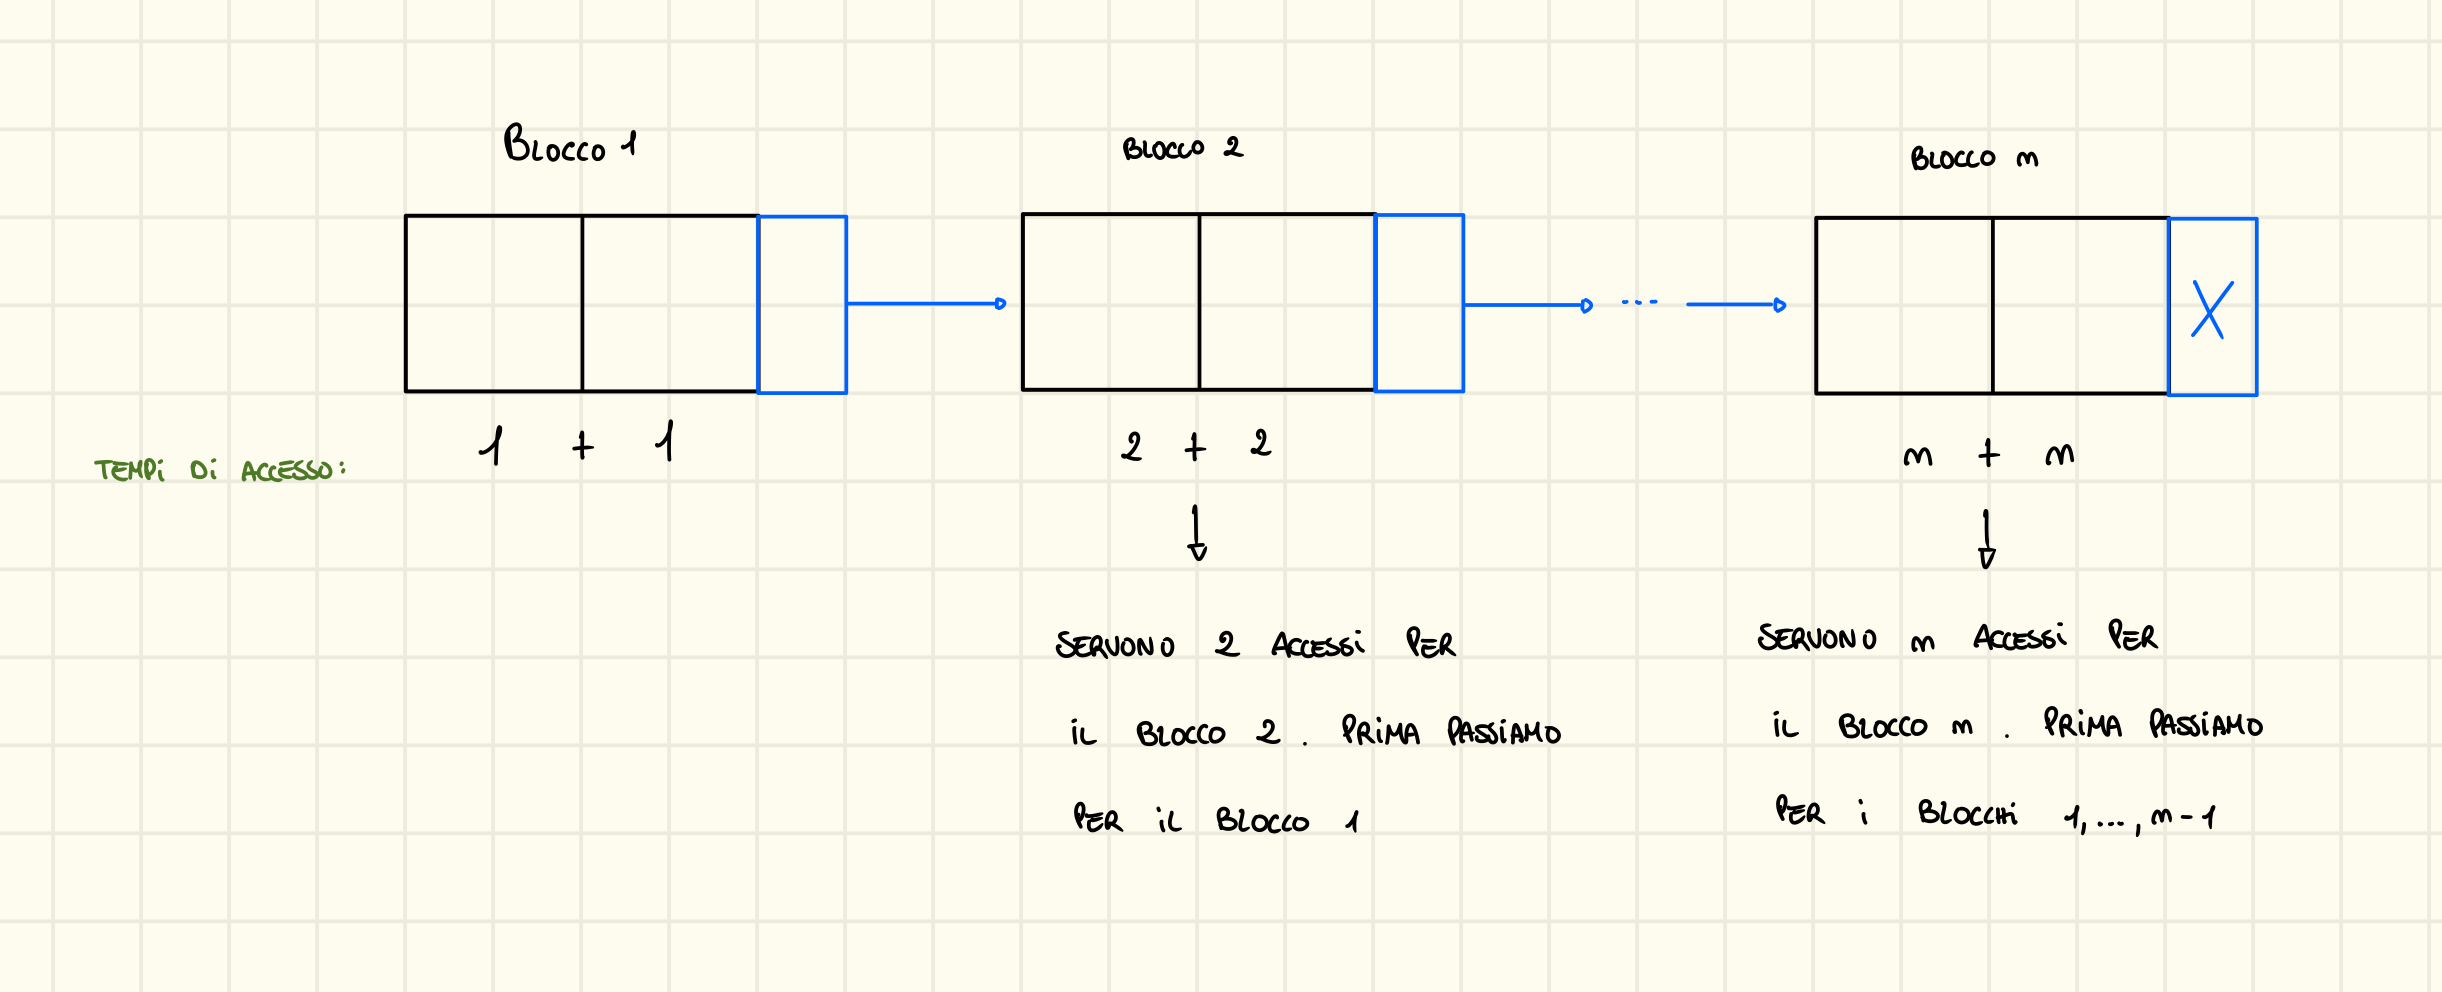 BLOCCO 1
BLOCCO 2
BLOCCO m
X
1 + 1
2 + 2
m + m
TEMPi Di ACCESSO:
SERVONO 2 ACCESSi PER
iL BLOCCO 2 . PRiMA PASSiAMO
PER iL BLOCCO 1
SERVONO m ACCESSi PER
iL BLOCCO m . PRiMA PASSiAMO
PER i BLOCCHi 1, ..., m-1